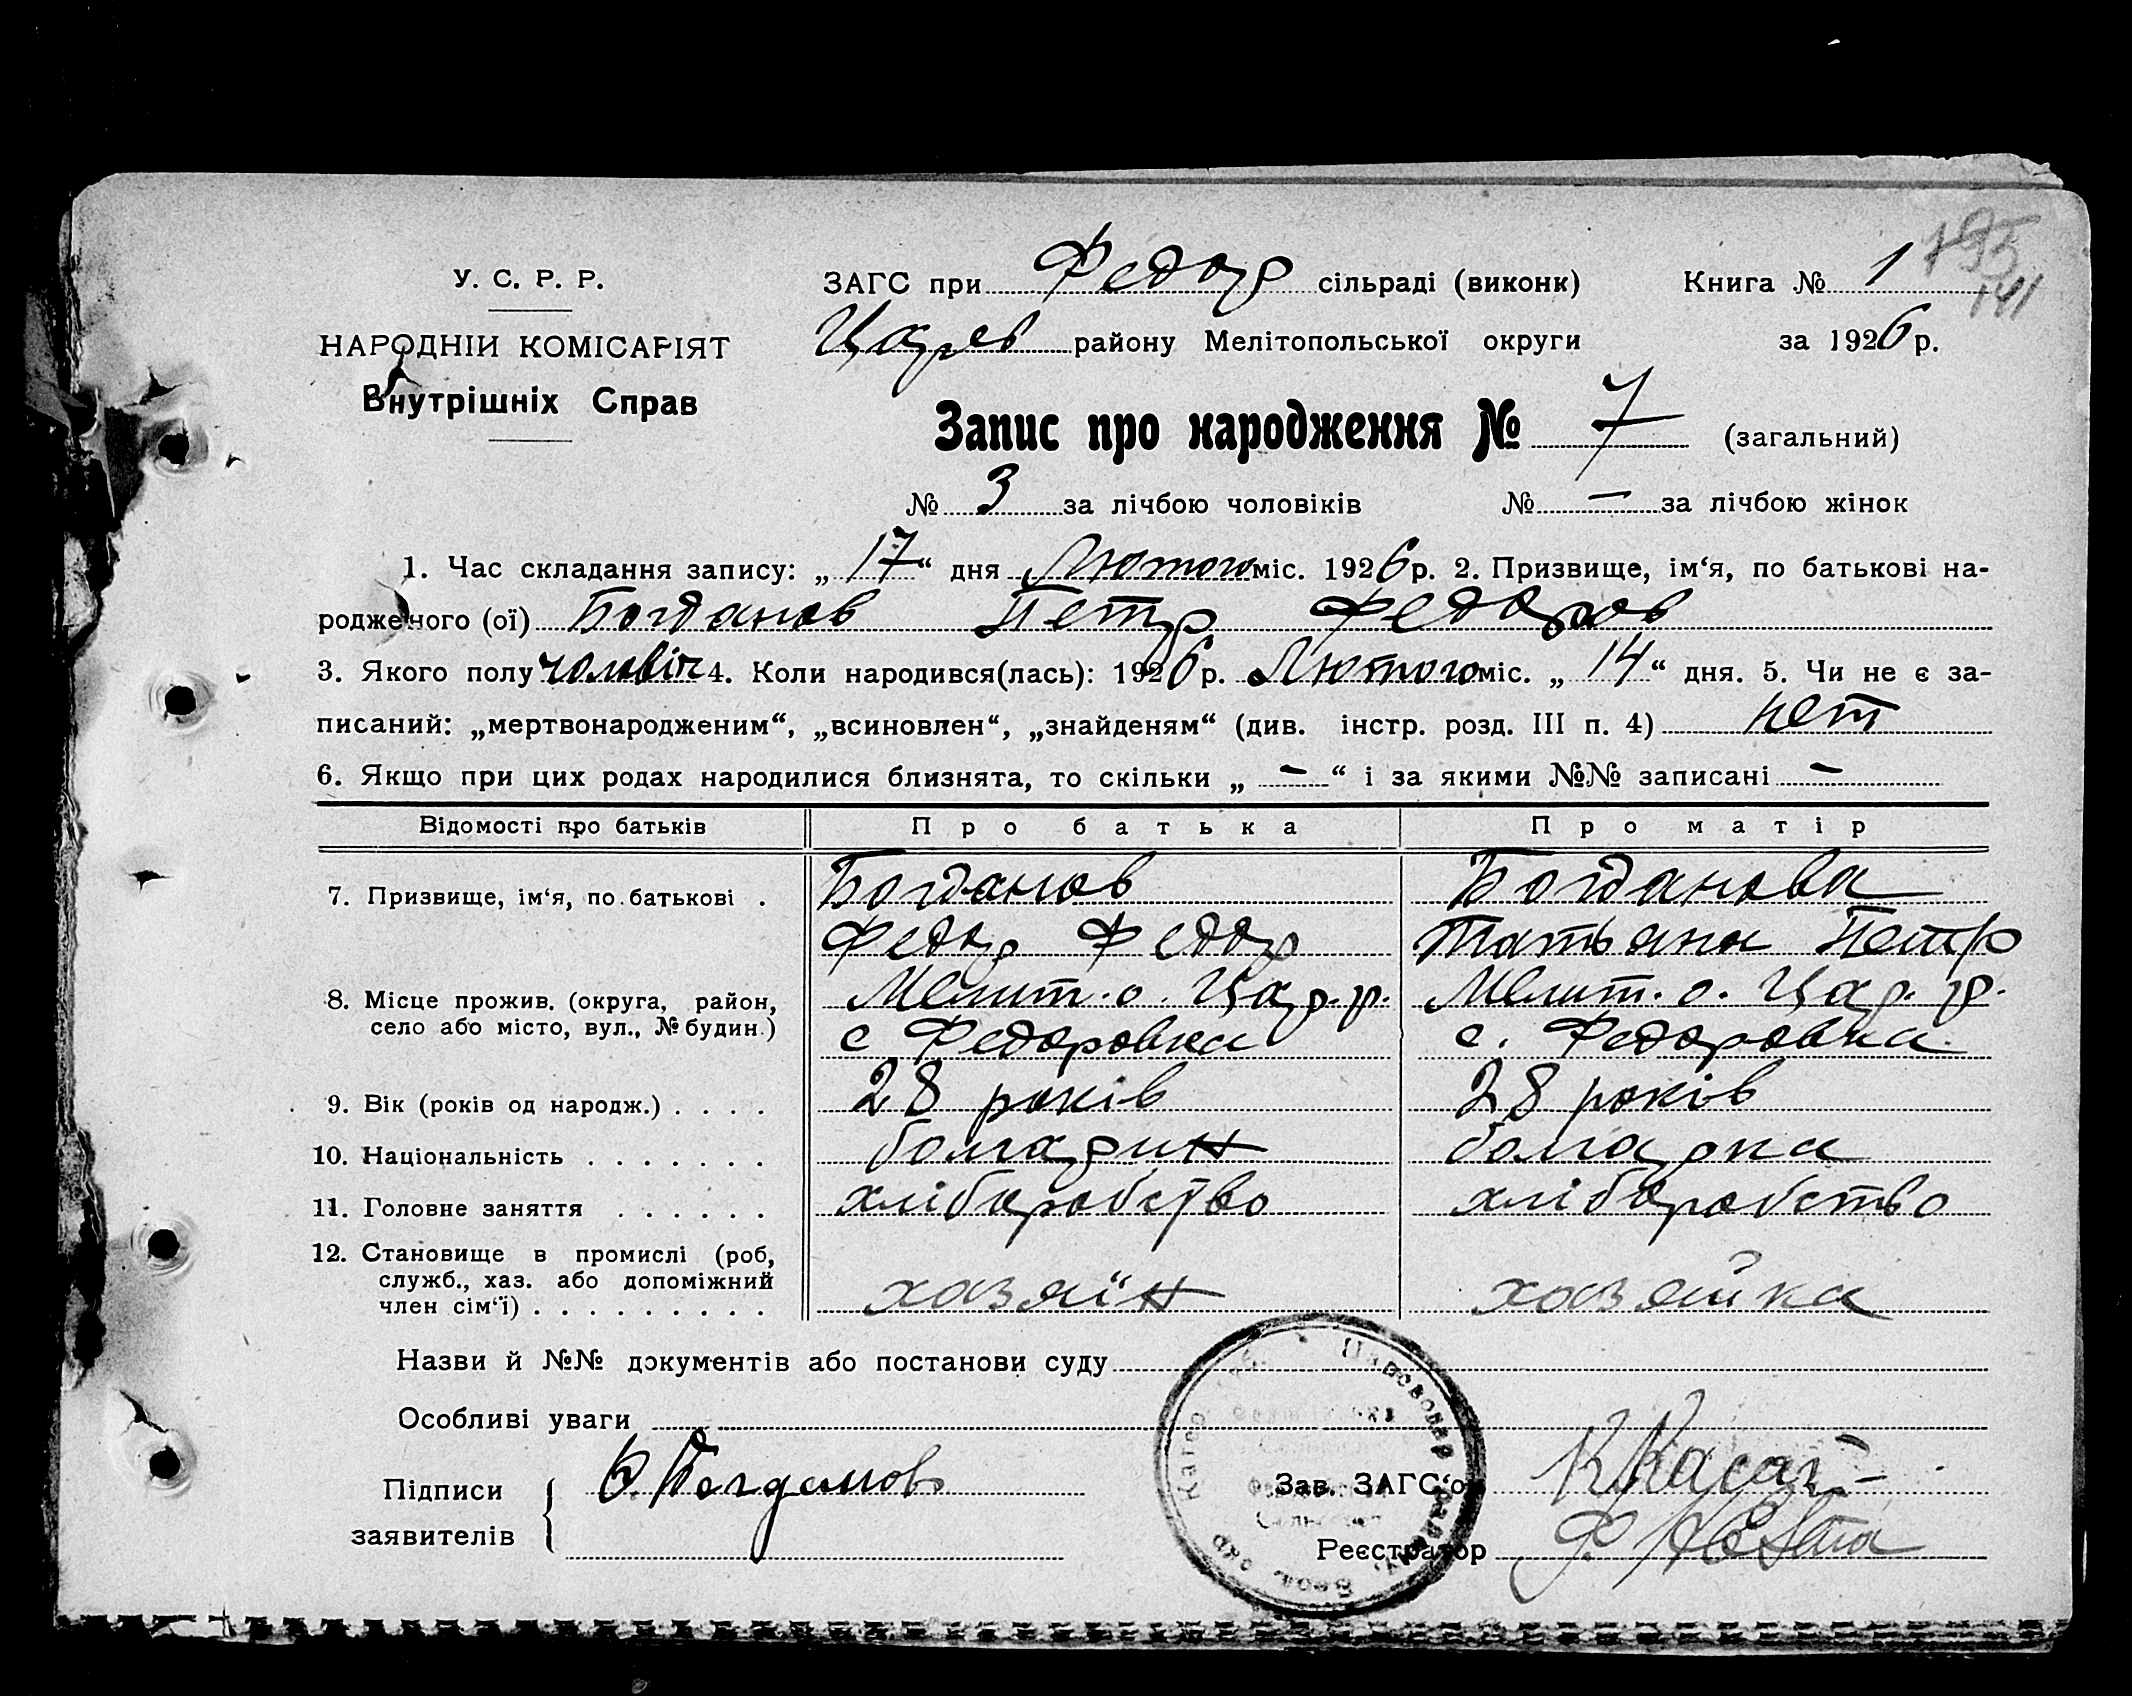 195
141
У. С. Р. Р.
ЗАГС при Федор сільраді (виконк) Книга № 1
НАРОДНІЙ КОМІСАРІЯТ
Царев району Мелітопольської округи за 1926 р.
Внутрішніх Справ
Запис про народження № 7 (загальний)
№ 3 за лічбою чоловіків № — за лічбою жінок
1. Час складання запису: „17“ дня Лютого міс. 1926 р. 2. Призвище, ім‘я, по батькові на-
родженого (ої) Богданов Петр Федоров
3. Якого полу чоловіч 4. Коли народився(лась): 1926 р. Лютого міс. „14“ дня. 5. Чи не є за-
писаний: „мертвонародженим“, „всиновлен“, „знайденям“ (див. інстр. розд. III п. 4) нет
6. Якщо при цих родах народилися близнята, то скільки „—“ і за якими №№ записані —
Відомості про батьків Про батька Про матір
7. Призвище, ім‘я, по батькові . Богданов Богданова
Федор Федор Татьяна Петр
8. Місце прожив. (округа, район, Мелит. о. Цар. р. Мелит. о. Цар. р.
село або місто, вул., № будин.) с Федоровка с. Федоровка
9. Вік (років од народж.) . . . . 28 років 28 років
10. Національність . . . . . . . болгарин болгарка
11. Головне заняття . . . . . . хліборобство хліборобство
12. Становище в промислі (роб,
служб., хаз. або допоміжний
член сім‘ї) . . . . . . . . . хазяїн хозяйка
Назви й №№ документів або постанови суду
Особливі уваги
Підписи
заявителів
Богданов
Зав. ЗАГС‘ом
Реєстратор